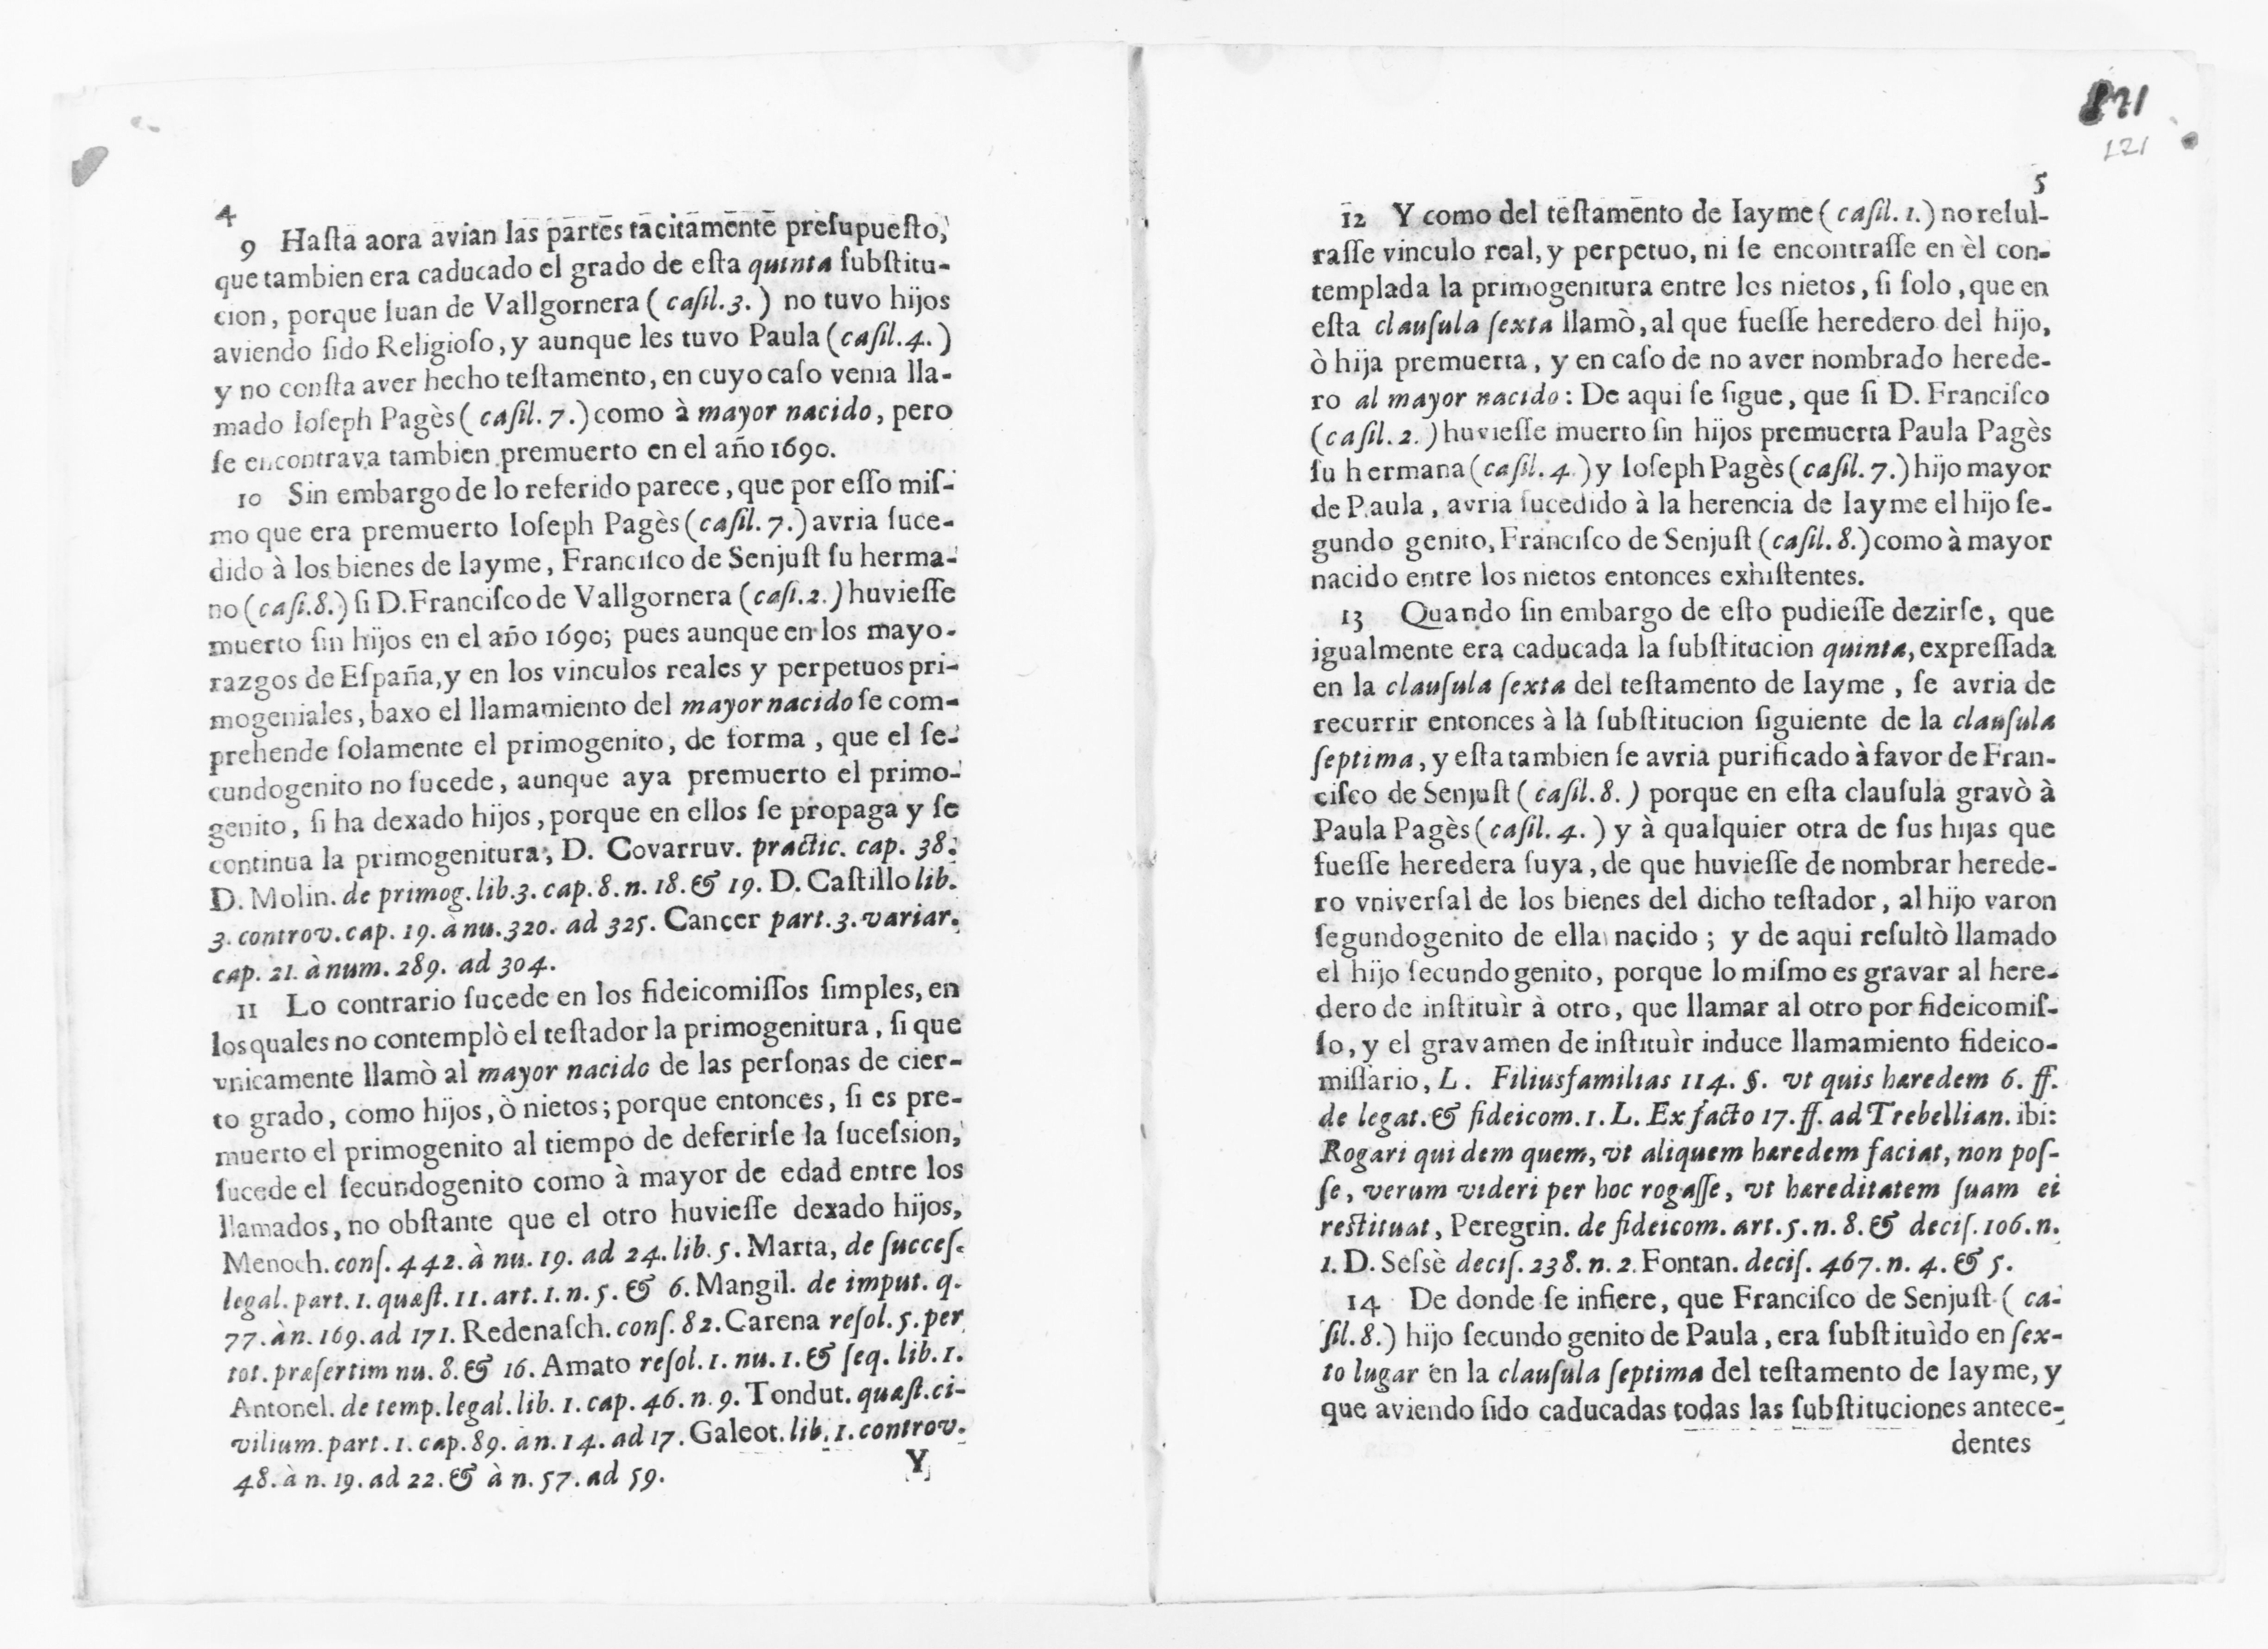 4
9 Haſta aora avian las partes tacitamente preſupueſto,
que tambien era caducado el grado de eſta quinta ſubſtitu-
cion, porque Iuan de Vallgornera (caſil.3.) no tuvo hijos
aviendo ſido Religioſo, y aunque les tuvo Paula (caſil.4.)
y no conſta aver hecho teſtamento, en cuyo caſo venia lla-
mado Ioſeph Pagès (caſil. 7.) como à mayor nacido, pero
ſe encontrava tambien premuerto en el año 1690.
10 Sin embargo de lo referido parece, que por eſſo miſ-
mo que era premuerto Ioſeph Pagès (caſil. 7.) avria ſuce-
dido à los bienes de Iayme, Franciſco de Senjuſt ſu herma-
no (caſi.8.) ſi D. Franciſco de Vallgornera (caſi.2.) huvieſſe
muerto ſin hijos en el año 1690; pues aunque en los mayo-
razgos de Eſpaña, y en los vinculos reales y perpetuos pri-
mogeniales, baxo el llamamiento del mayor nacido ſe com-
prehende ſolamente el primogenito, de forma, que el ſe-
cundogenito no ſucede, aunque aya premuerto el primo-
genito, ſi ha dexado hijos, porque en ellos ſe propaga y ſe
continua la primogenitura; D. Covarruv. practic. cap. 38.
D. Molin. de primog. lib.3. cap. 8. n. 18. & 19. D. Caſtillo lib.
3. controv. cap. 19. à nu. 320. ad 325. Cancer part. 3. variar.
cap. 21. à num. 289. ad 304.
11 Lo contrario ſucede en los fideicomiſſos ſimples, en
los quales no contemplò el teſtador la primogenitura, ſi que
vnicamente llamò al mayor nacido de las perſonas de cier-
to grado, como hijos, ò nietos; porque entonces, ſi es pre-
muerto el primogenito al tiempo de deferirſe la ſuceſsion,
ſucede el ſecundogenito como à mayor de edad entre los
llamados, no obſtante que el otro huvieſſe dexado hijos,
Menoch. conſ. 442. à nu. 19. ad 24. lib. 5. Marta, de ſucceſ.
legal. part. 1. quæſt. 11. art. 1. n. 5. & 6. Mangil. de imput. q.
77. à n. 169. ad 171. Redenaſch. conſ. 82. Carena reſol. 5. per
tot. præſertim nu. 8. & 16. Amato reſol. 1. nu. 1. & ſeq. lib. 1.
Antonel. de temp. legal. lib. 1. cap. 46. n. 9. Tondut. quæſt. ci-
vilium. part. 1. cap. 89. à n. 14. ad 17. Galeot. lib. 1. controv.
48. à n. 19. ad 22. & à n. 57. ad 59.
Y
821
121
5
12 Y como del teſtamento de Iayme (caſil. 1.) no reſul-
taſſe vinculo real, y perpetuo, ni ſe encontraſſe en èl con-
templada la primogenitura entre los nietos, ſi ſolo, que en
eſta clauſula ſexta llamò, al que fueſſe heredero del hijo,
ò hija premuerta, y en caſo de no aver nombrado herede-
ro al mayor nacido: De aqui ſe ſigue, que ſi D. Franciſco
(caſil. 2.) huvieſſe muerto ſin hijos premuerta Paula Pagès
ſu hermana (caſil. 4.) y Ioſeph Pagès (caſil. 7.) hijo mayor
de Paula, avria ſucedido à la herencia de Iayme el hijo ſe-
gundo genito, Franciſco de Senjuſt (caſil. 8.) como à mayor
nacido entre los nietos entonces exhiſtentes.
13 Quando ſin embargo de eſto pudieſſe dezirſe, que
igualmente era caducada la ſubſtitucion quinta, expreſſada
en la clauſula ſexta del teſtamento de Iayme, ſe avria de
recurrir entonces à la ſubſtitucion ſiguiente de la clauſula
ſeptima, y eſta tambien ſe avria purificado à favor de Fran-
ciſco de Senjuſt (caſil. 8.) porque en eſta clauſula gravò à
Paula Pagès (caſil. 4.) y à qualquier otra de ſus hijas que
fueſſe heredera ſuya, de que huvieſſe de nombrar herede-
ro vniverſal de los bienes del dicho teſtador, al hijo varon
ſegundogenito de ella nacido; y de aqui reſultò llamado
el hijo ſecundo genito, porque lo miſmo es gravar al here-
dero de inſtituìr à otro, que llamar al otro por fideicomiſ-
ſo, y el gravamen de inſtituìr induce llamamiento fideico-
miſſario, L. Filiusfamilias 114. §. vt quis hæredem 6. ff.
de legat. & fideicom. 1. L. Ex facto 17. ff. ad Trebellian. ibi:
Rogari quidem quem, vt aliquem hæredem faciat, non poſ-
ſe, verum videri per hoc rogaſſe, vt hæreditatem ſuam ei
reſtituat, Peregrin. de fideicom. art. 5. n. 8. & deciſ. 106. n.
1. D. Seſsè deciſ. 238. n. 2. Fontan. deciſ. 467. n. 4. & 5.
14 De donde ſe infiere, que Franciſco de Senjuſt (ca-
ſil. 8.) hijo ſecundo genito de Paula, era ſubſtituìdo en ſex-
to lugar en la clauſula ſeptima del teſtamento de Iayme, y
que aviendo ſido caducadas todas las ſubſtituciones antece-
dentes